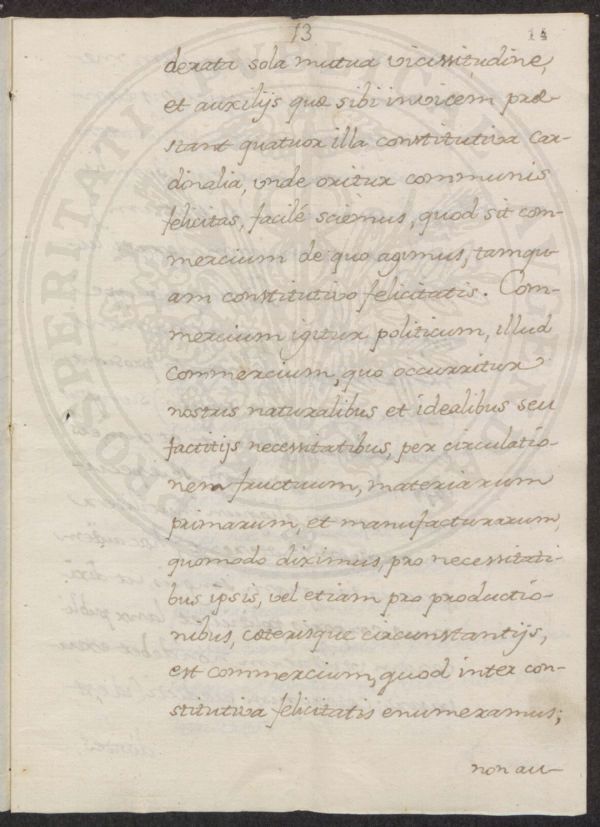 13
14
derata sola mutua vicissitudine,
et auxilijs quæ sibi invicem præ-
stant quatuor illa constitutiva Car-
dinalia, unde oritur communis
felicitas, facilé sciemus, quod sit com-
mercium de quo agimus, tamqu-
am constitutivo felicitatis. Com-
mercium igitur politicum, illud
commercium, quo occurritur
nostris naturalibus et idealibus seu
factitijs necessitatibus, per circulatio-
nem fructuum, materiarum
primarum, et manufacturarum,
quomodo diximus, pro necessitati-
bus ipsis, vel etiam pro productio-
nibus, cæterisque circunstantijs,
est commercium, quod inter con-
stitutiva felicitatis enumeramus;
non au-